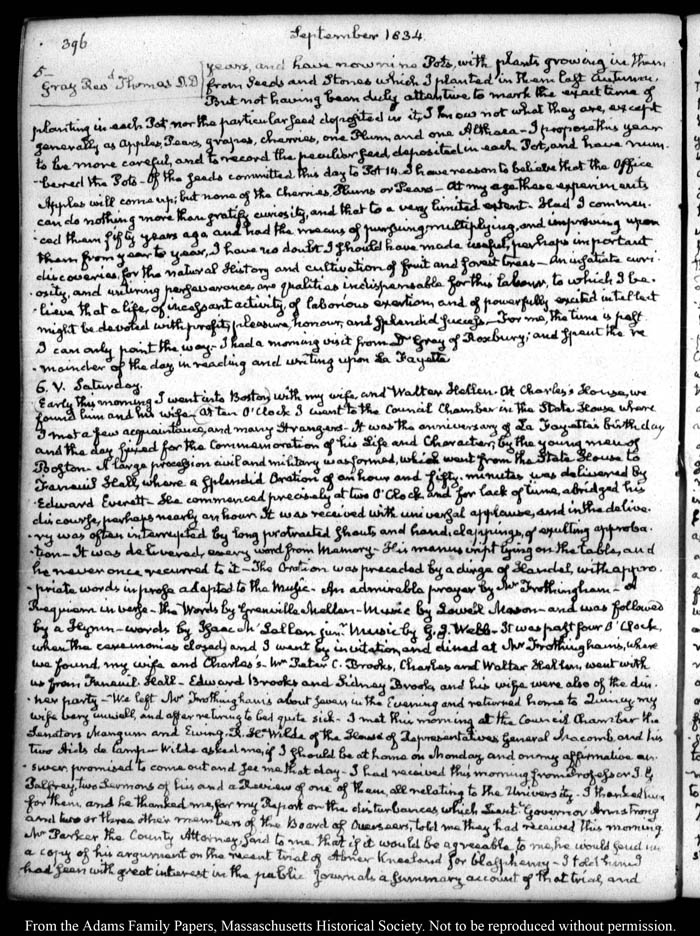 396
September 1834.
5
Gray Revd. Thomas D.D
years, and have now nine Pots, with plants growing in them
from Seeds and Stones which I planted in them last Autumn.
But not having been duly attentive to mark the exact time of
planting in each Pot, nor the particular seed deposited in it, I know not what they are, except
generally as Apples, Pears, grapes, cherries, one Plum, and one Althaea- I propose this year
to be more careful, and to record the peculiar seed deposited in each Pot, and have num-
-bered the Pots- Of the seeds committed this day to Pot 14. I have reason to believe that the Office
Apples will come up; but none of the Cherries, Plums or Pears- At my age these experiments
can do nothing more than gratify curiosity, and that to a very limited extent- Had I commen-
-ced them fifty years ago and had the means of pursuing, multiplying, and improving upon
them from year to year, I have no doubt I should have made useful, perhaps important
discoveries, for the natural History and cultivation of fruit and forest trees- An insatiate curi-
osity, and untiring perseverance, are qualities indispensable for this labour, to which I be-
-lieve that a life, of incessant activity, of laborious exertion, and of powerfully excited intellect
might be devoted with profit, pleasure, honour, and splendid success- For me, the time is past
I can only point the way- I had a morning visit from Dr. Gray of Roxbury; and spent the re-
-mainder of the day in reading and writing upon La Fayette
6. V. Saturday.
Early this morning I went into Boston, with my wife, and Walter Hellen. At Charles's House, we
found him and his wife, at ten O'Clock I went to the Council Chamber in the State House where
I met a few acquaintance, and many strangers- It was the anniversary of La Fayette's birth day
and the day fixed for the Commemoration of his Life and Character; by the young men of
Boston- A large procession civil and military was formed, which went from the State House to
Faneuil Hall, where a splendid Oration of an hour and fifty minutes was delivered by
Edward Everett- He commenced precisely at two O'Clock, and for lack of time, abridged his
discourse, perhaps nearly an hour. It was received with universal applause, and in the delive-
-ry was often interrupted by long protracted shouts and hand clappings, of exulting approba-
-tion- It was delivered, every word from Memory- His manuscript lying on the table, and
he never once recurred to it- The Oration was preceded by a dirge of Handel, with appro-
-priate words in prose adapted to the Music- An admirable prayer by Mr Frothingham- a
Requiem in verse- the Words by Grenville Mellen- Music by Lowell Mason- and was followed
by a Hymn- words by Isaac McLellan junr. Music by G. J. Webb- It was past four O'Clock,
when the ceremonies closed, and I went by invitation, and dined at Mr Frothingham's, where
we found, my wife and Charles's- Mr Peter C. Brooks, Charles and Walter Hellen, went with
us from Faneuil Hall- Edward Brooks and Sidney Brooks and his wife were also of the din-
-ner party- We left Mr Frothingham's about seven in the Evening and returned home to Quincy my
wife very unwell, and after returning to bed quite sick- I met this morning at the Council Chamber the
Senators Mangum and Ewing, R. H. Wilde of the House of Representatives General Macomb, and his
two Aids de Camp- Wilde asked me, if I should be at home on Monday, and on my affirmative an-
swer, promised to come out and see me that day- I had received this morning from Professor J. G
Palfrey, two Sermons of his and a Review of one of them, all relating to the University- I thanked him
for them, and he thanked me, for my Report on the disturbances, which Lieut. Governor Armstrong
and two or three other members of the Board of Overseers, told me they had received this morning
Mr Parker the County Attorney, said to me, that if it would be agreeable to me, he would send me
a copy of his argument on the recent trial of Abner Kneeland for blasphemy- I told him I
had seen with great interest in the public Journals a summary account of that trial, and
From the Adams Family Papers, Massachusetts Historical Society. Not to be reproduced without permission.